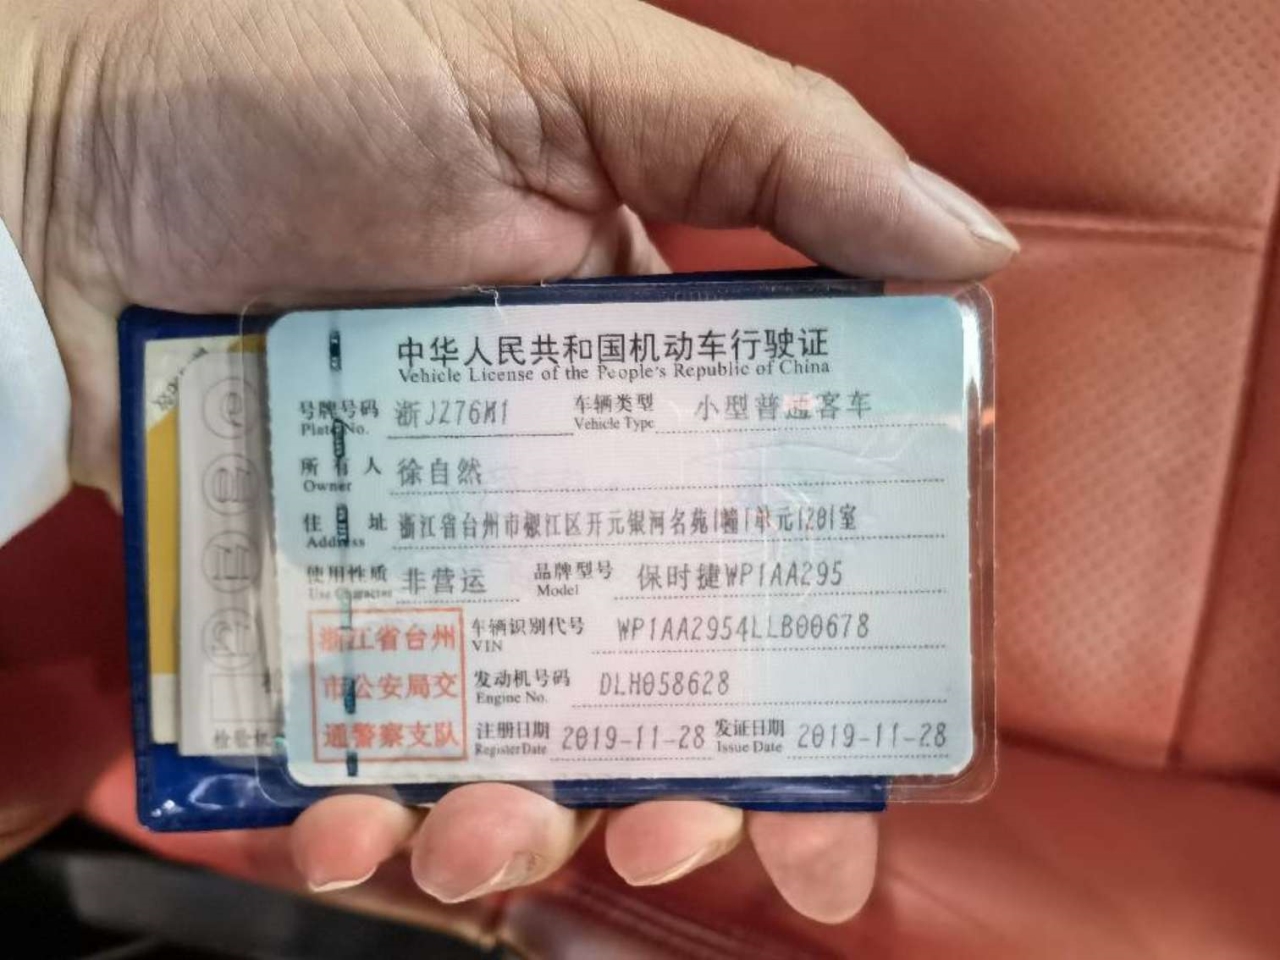 中华人民共和国机动车行驶证
Vehicle License of the People's Republic of China
号牌号码 浙JZ76M1 车辆类型 小型普通客车
Plate No. Vehicle Type
所有人 徐自然
Owner
住址 浙江省台州市椒江区开元银河名苑1幢1单元1201室
Address
使用性质 非营运 品牌型号 保时捷WP1AA295
Use Character Model
浙江省台州 车辆识别代号 WP1AA2954LLB00678
VIN
市公安局交 发动机号码 DLH058628
Engine No.
通警察支队 注册日期 2019-11-28 发证日期 2019-11-28
Register Date Issue Date
检验